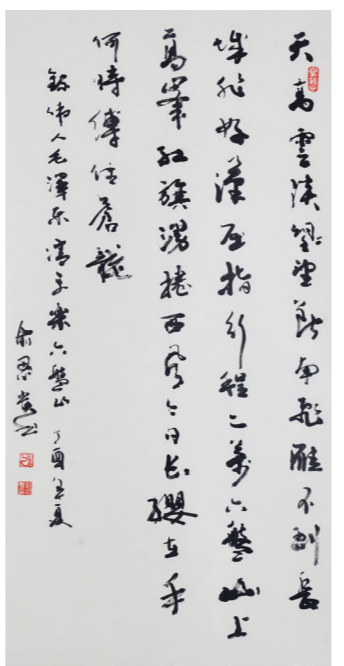 天高雲淡望斷南飛雁不到長
城非好漢屈指行程二萬六盤山上
高峯紅旗漫捲西風今日長纓在手
何時縛住蒼龍
錄偉人毛澤東清平樂六盤山 丁酉年夏